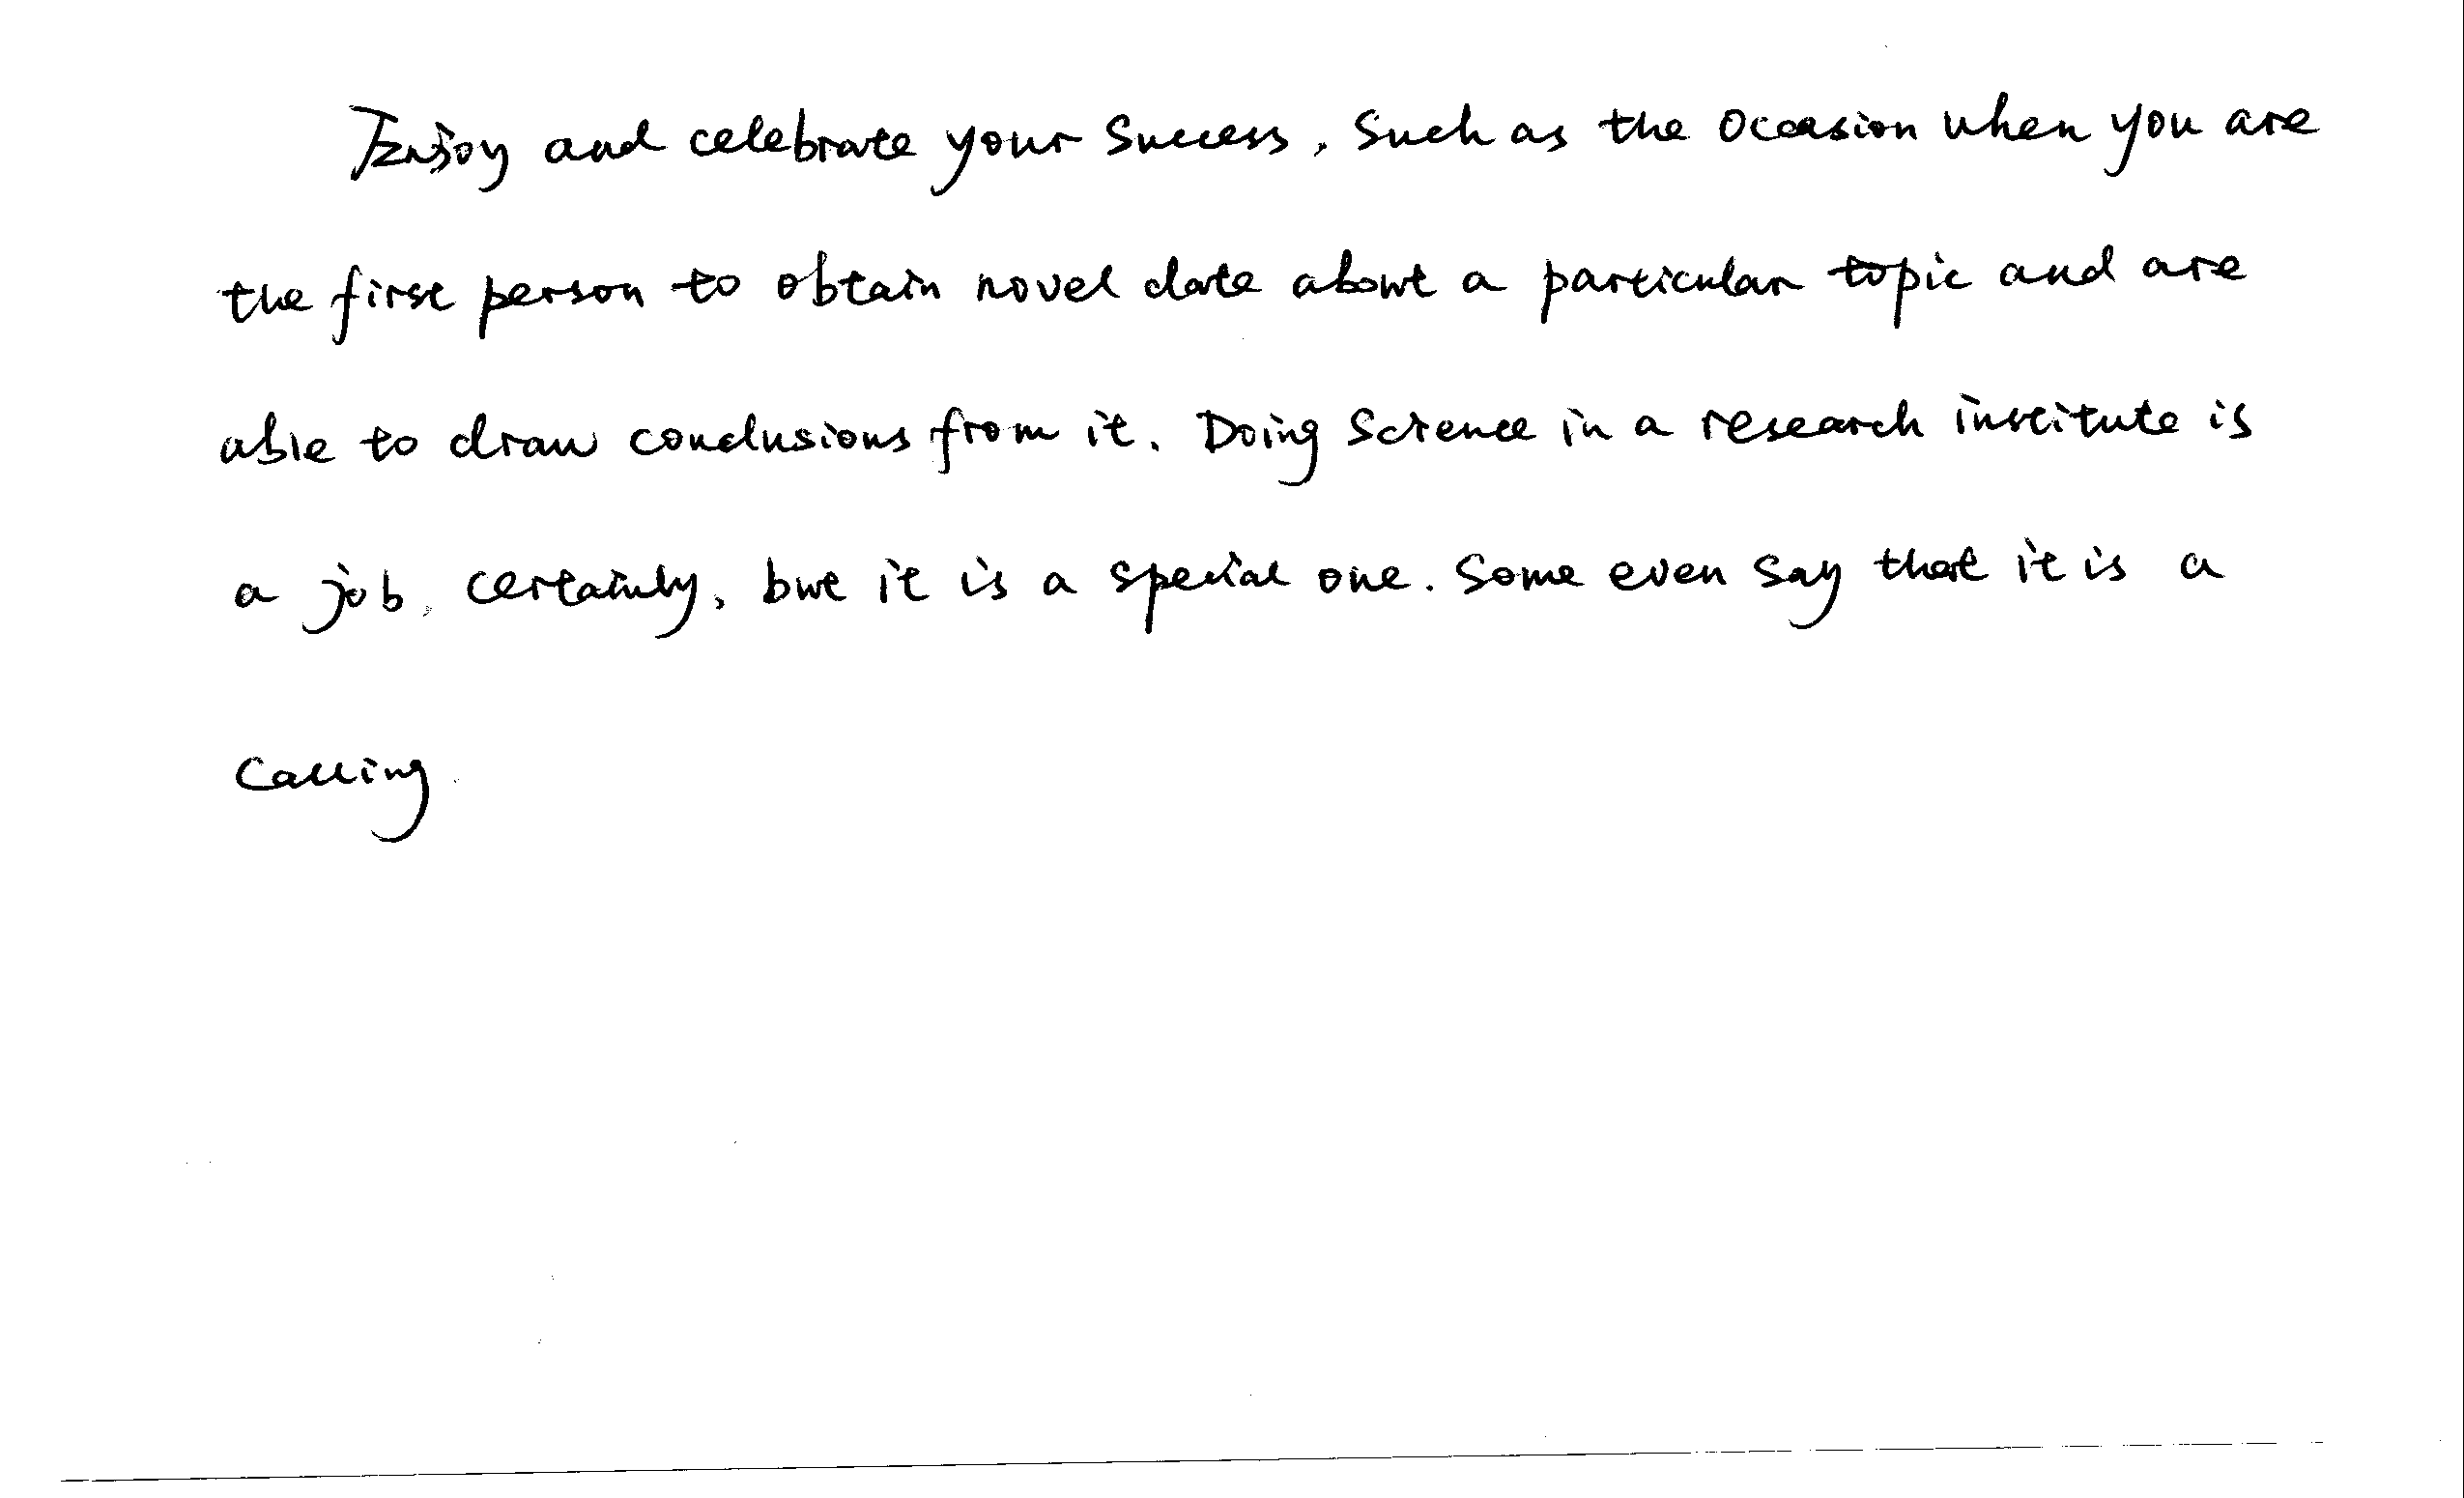 Enjoy and celebrate your success, such as the occasion when you are
the first person to obtain novel date about a particular topic and are
able to draw conclusions from it. Doing science in a research institute is
a job, certainly, but it is a special one. Some even say that it is a
calling.